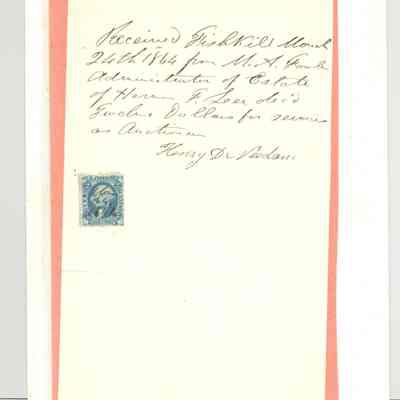 Received Fishkill March
24th 1864 from M. A. Fowler
Administrator of Estate
of Hiram F. dec'd
Twelve Dollars for services
as Auctioneer
Henry D.